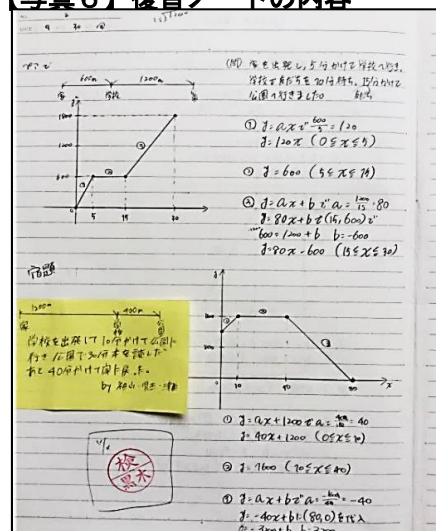 【写真6】復習ノートの内容
9 30
600m 1200m
家 学校
y
1800
1200
600
0 5 15 30 x
①
②
③
(問) 家を出発し、5分かけて学校へ行き、
学校で友だちを10分待ち、15分かけて
公園へ行きました
① y=axで 600/5=120
y=120x (0≦x≦5)
② y=600 (5≦x≦15)
③ y=ax+bで a=1200/15=80
y=80x+bで(15,600)で
600=1200+b b=-600
y=80x-600 (15≦x≦30)
宿題
1200m 400m
家
学校を出発して10分かけて公園に
行き公園で30分本を読んだ
あと40分かけて家に戻った。
by
y
0 10 40 80 x
①
②
③
① y=ax+1200で a=400/10=40
y=40x+1200 (0≦x≦10)
② y=1600 (10≦x≦40)
③ y=ax+bで a= =-40
y=-40x+bに(80,0)を代入
検
黒木